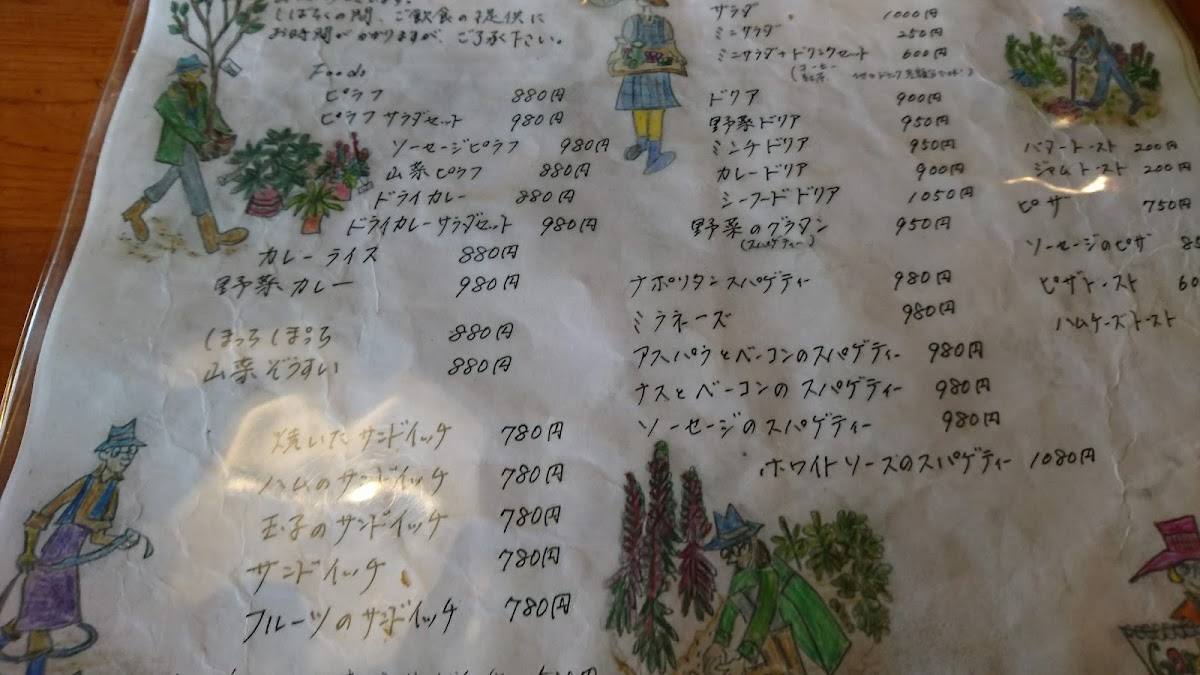 しばらくの間、ご飲食の提供に
お時間がかかりますが、ご了承下さい。
Foods
ピラフ 880円
ピラフ サラダセット 980円
ソーセージピラフ 980円
山菜ピラフ 880円
ドライカレー 880円
ドライカレーサラダセット 980円
カレーライス 880円
野菜カレー 980円
880円
山菜ぞうすい 880円
焼いたサンドイッチ 780円
ハムのサンドイッチ 780円
玉子のサンドイッチ 780円
サンドイッチ 780円
フルーツのサンドイッチ 780円
サラダ 1000円
ミニサラダ 250円
ミニサラダ+ドリンクセット 600円
コーヒー
紅茶
ドリア 900円
野菜ドリア 950円
ミンチドリア 950円
カレードリア 900円
シーフードドリア 1050円
野菜のグラタン 950円
(スパゲティー)
ナポリタンスパゲティー 980円
ミラネーズ 980円
アスパラとベーコンのスパゲティー 980円
ナスとベーコンのスパゲティー 980円
ソーセージのスパゲティー 980円
ホワイトソースのスパゲティー 1080円
バタートースト 200円
ジャムトースト 200円
ピザ 750円
ソーセージのピザ
ピザトースト
ハムチーズトースト